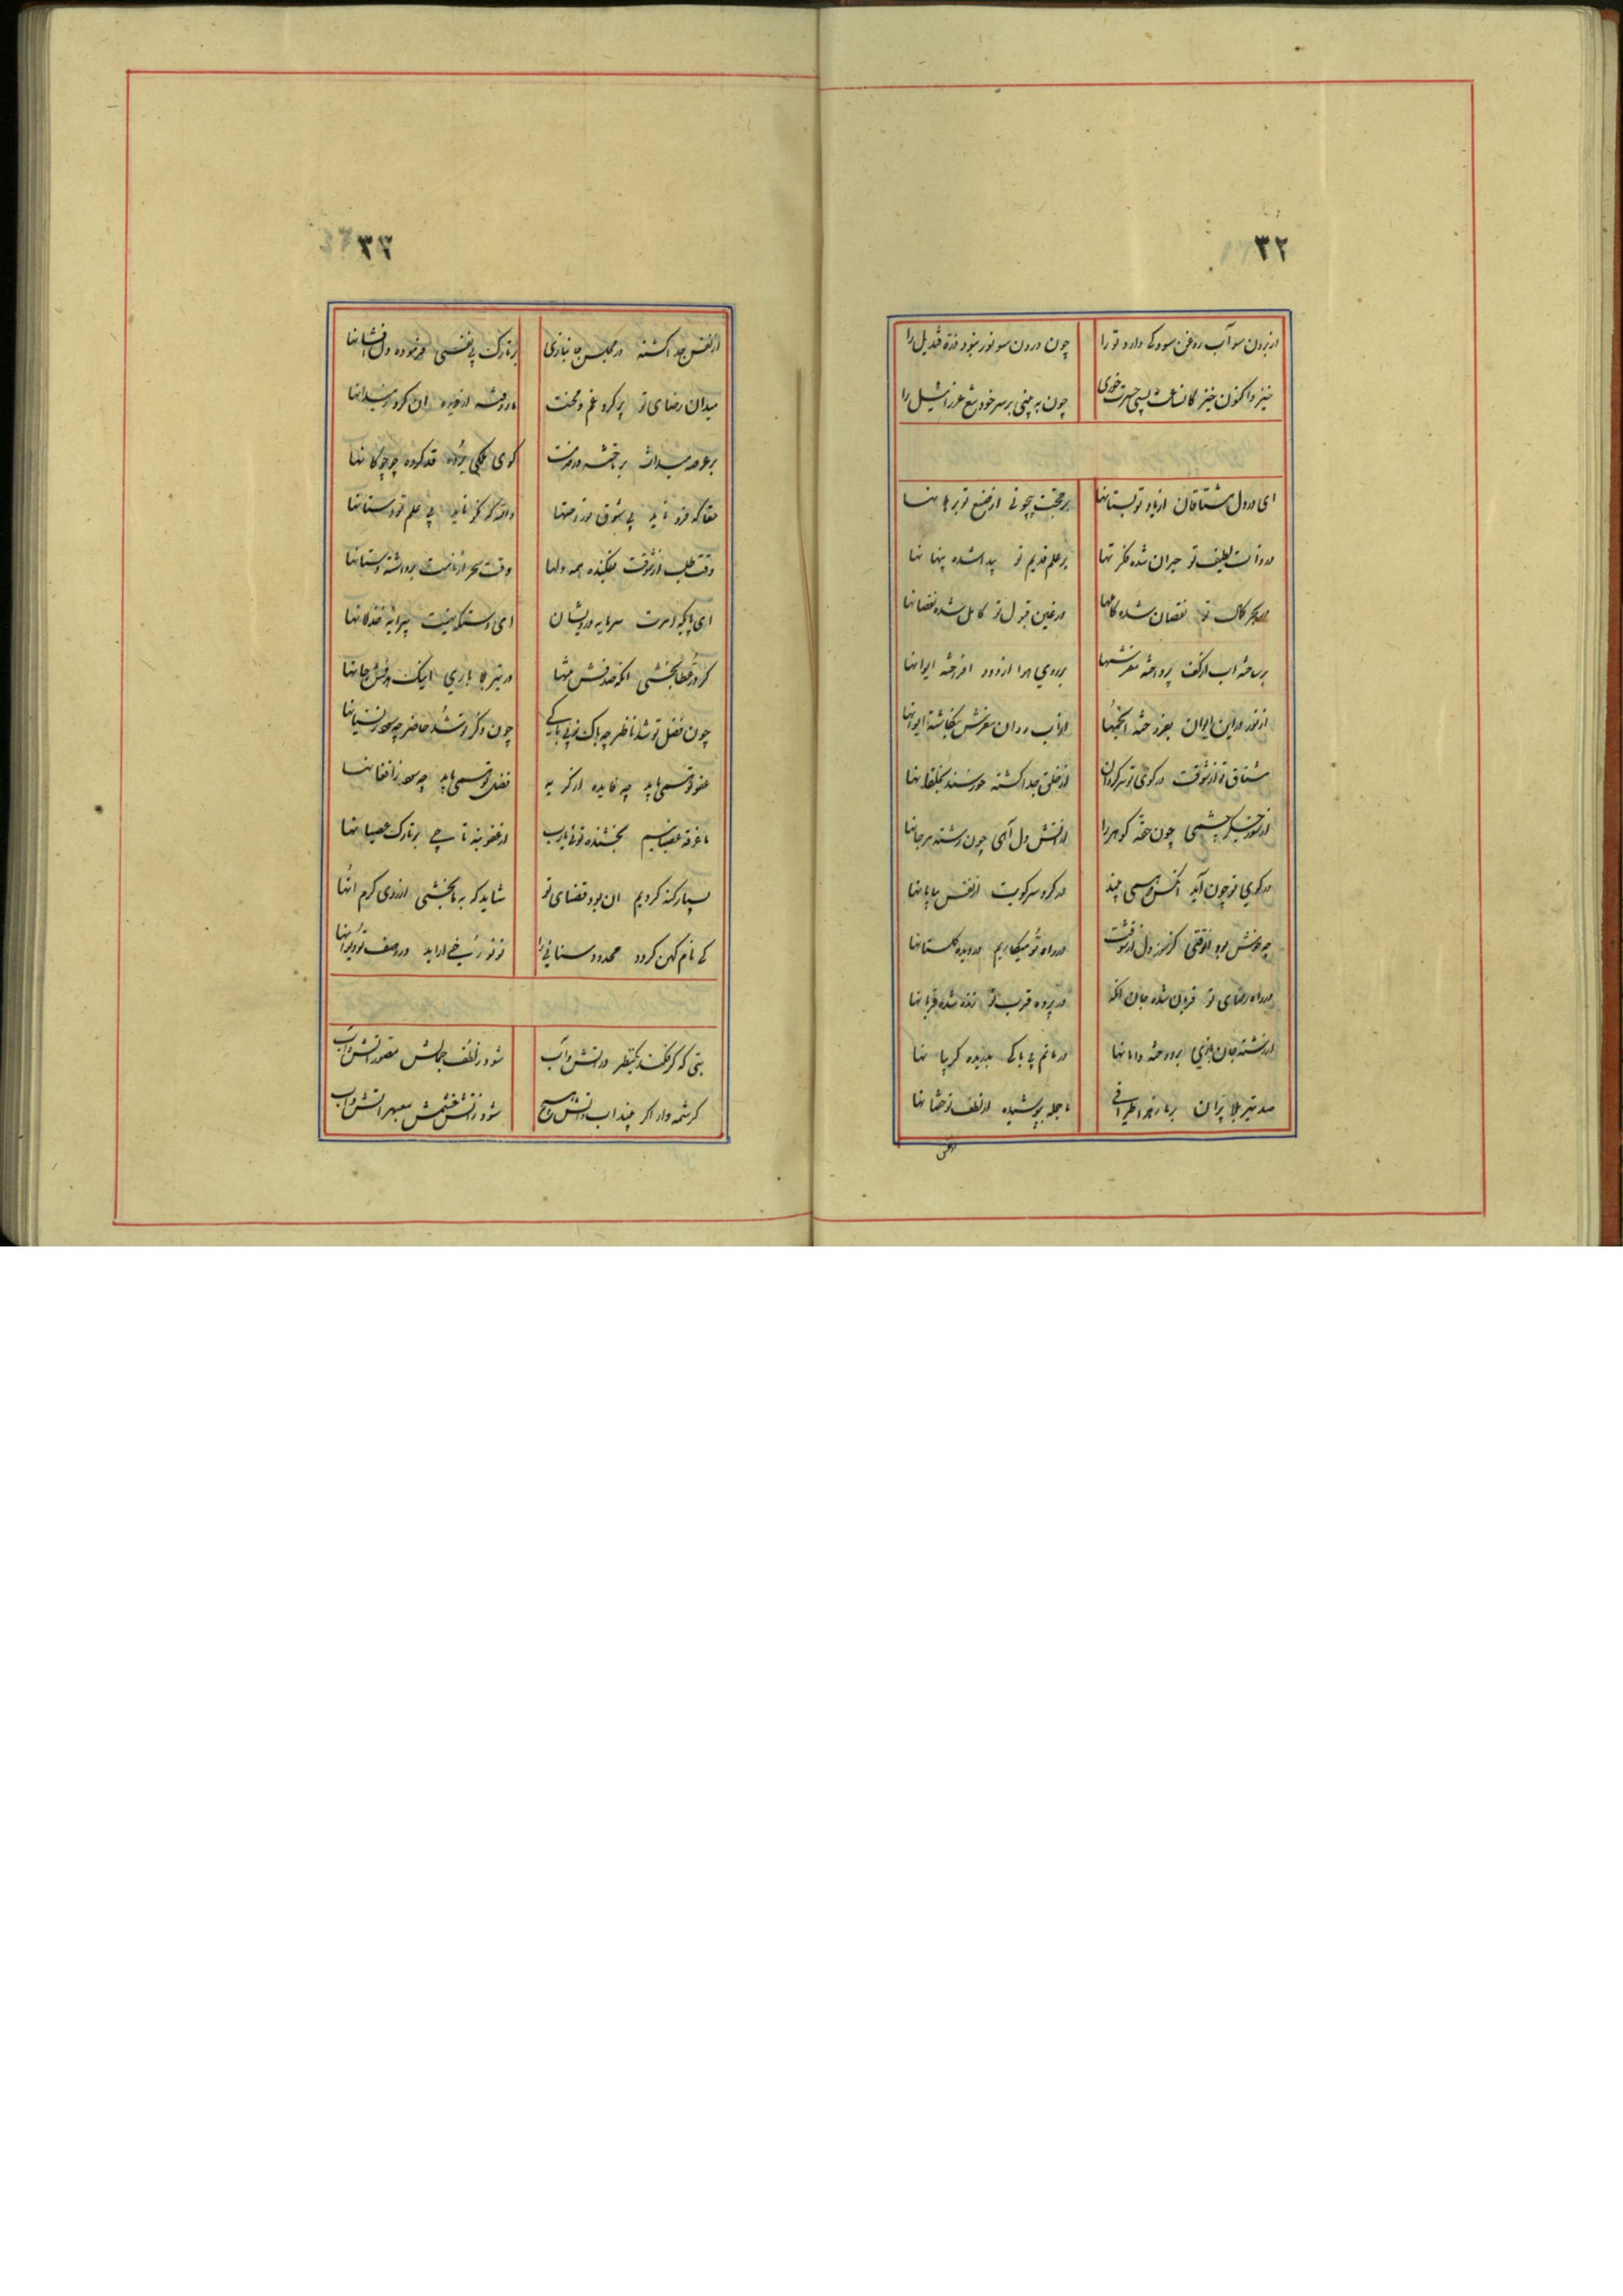 ۳۲
از برون سو آب و روغن سود کی دارد ترا چون درون سو نور نبود ذره قندیل را
خیز و اکنون خیز کانساعت بسی حسرت خوری چون به بینی بر سر خود تیغ عزرائیل را
ای در دل مشتاقان از یاد تو بستانها بر حجت بیچونی از صنع تو برهانها
در ذات لطیف تو حیران شده فکرتها بر علم قدیم تو پیدا شده پنهانها
در بحر کمال تو نقصان شده کاملها در عین قبول تو کامل شده نقصانها
بر ساخته اب از کف پرداخته مفرشها بر روی هوا از دود افراخته ایوانها
از نور در این ایوان بفروخته انجمها از آب روان مفرش بنگاشته ایوانها
مشتاق تو از شوقت در کوی تو سرگردان از خلق جدا گشته خورسند بخلقانها
از سوز جگر چشمی چون حقه گوهرها از آتش دل آهی چون رشته مرجانها
در کوی تو چون آید انکس که همی بیند در گرد سر کویت از نفس بیابانها
چه خوش بود انوقتی کز سوز دل از شوقت در راه تو میکاریم در دیده گلستانها
در راه رضای تو قربان شده جان انکه در پرده قرب تو زنده شده قربانها
از رشته جان بازی بر دوخته دامانها در ماتم بی باکی بدریده گریبانها
صد تیر بلا پران بر ما ز هر اطرافی ما جمله بپوشیده از لطف تو خفتانها
از نفس
۳۳
از نفس جدا گشته در مجلس جانبازی بر تارک بی نفسی فرموده دل افشانها
میدان رضای تو پر گرد غم و محنت ما روفته از دیده ان گرد ز میدانها
بر عرصه میدانت پرداخته در خدمت گوی فلکی برده قد کرده چو چوگانها
حقا که فرو ناید بی شوق تو راحتها والله که نکو ناید بی علم تو دستانها
وقت طلب از شوقت بفکنده همه دلها وقت سحر از بامت برداشته دستانها
ای پاکیه امرت سرمایه درویشان ای دستگه نهیت پیرایه خذلانها
گر در عطا بخشی انک صدفش دلها ور تیر بلا باری اینک هدفش جانها
چون فضل تو شد ناظر چه باک ز بی باکی چون ذکر تو شد حاضر چه سود ز نسیانها
عفو تو همی باید چه فایده از گریه فضل تو همی باید چه سود ز افغانها
ما غرقه عصیانیم بخشنده توئی یارب از عفو بنه تاجی بر تارک عصیانها
بسیار گنه کردیم ان بود قضای تو شاید که به ما بخشی از روی کرم انها
کی نام کهن گردد مجدود سنائی را نو نو ز رخی اراید در وصف تو دیوانها
بتی که گر فکند یکنظر در آتش و آب شود ز لطف جمالش مصور آتش و آب
کرشمه وار اگر بیند اب و آتش هیچ شود ز آتش خشمش معبهر آتش و آب